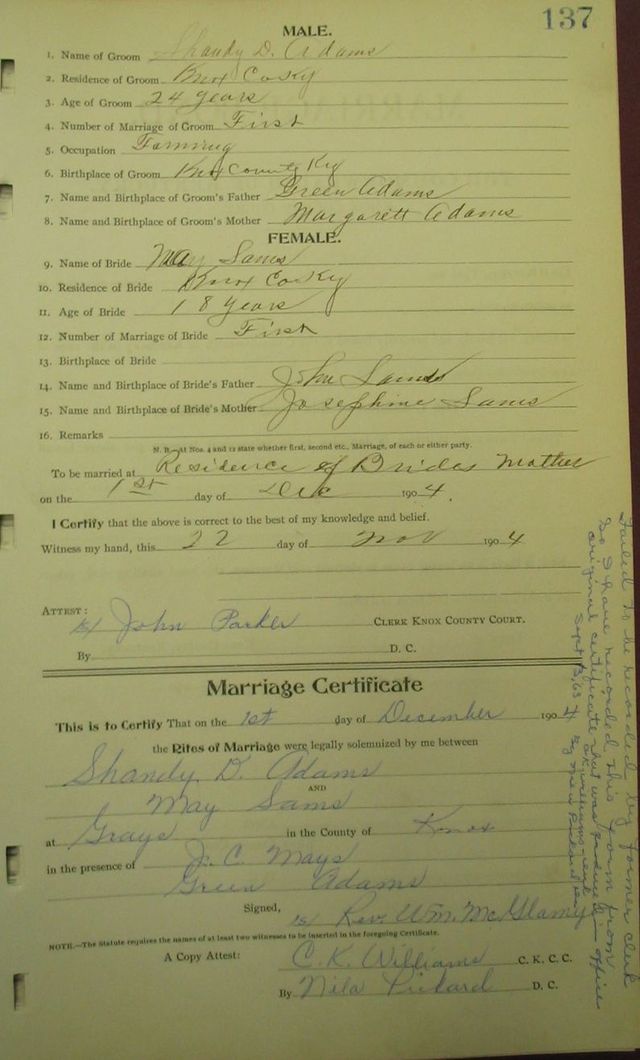 137
MALE.
1. Name of Groom Shandy D. Adams
2. Residence of Groom Knox Co Ky
3. Age of Groom 24 years
4. Number of Marriage of Groom First
5. Occupation Farming
6. Birthplace of Groom Knox County Ky
7. Name and Birthplace of Groom's Father Green Adams
8. Name and Birthplace of Groom's Mother Margarett Adams
FEMALE.
9. Name of Bride May Sams
10. Residence of Bride Knox Co Ky
11. Age of Bride 18 years
12. Number of Marriage of Bride First
13. Birthplace of Bride
14. Name and Birthplace of Bride's Father John Sams
15. Name and Birthplace of Bride's Mother Josephine Sams
16. Remarks
N. B.—At Nos. 4 and 12 state whether first, second etc., Marriage, of each or either party.
To be married at Residence of Brides Mother
on the 1st day of Dec 1904.
I Certify that the above is correct to the best of my knowledge and belief.
Witness my hand, this 22 day of Nov 1904
ATTEST:
/s/ John Parker CLERK KNOX COUNTY COURT.
By D. C.
Marriage Certificate
This is to Certify That on the 1st day of December 1904
the Rites of Marriage were legally solemnized by me between
Shandy D. Adams
AND
May Sams
at Grays in the County of Knox
in the presence of J. C. Mays
Green Adams
Signed, /s/ Rev. Wm. McGlamy
NOTE.—The Statute requires the names of at least two witnesses to be inserted in the foregoing Certificate.
A Copy Attest: C. K. Williams C. K. C. C.
By Nila Pickard D. C.
Failed to be recorded by former clerk
So I have recorded this form from
original certificate that was produced in office
Sept 13, 63 CK Williams clerk
By Nila Pickard